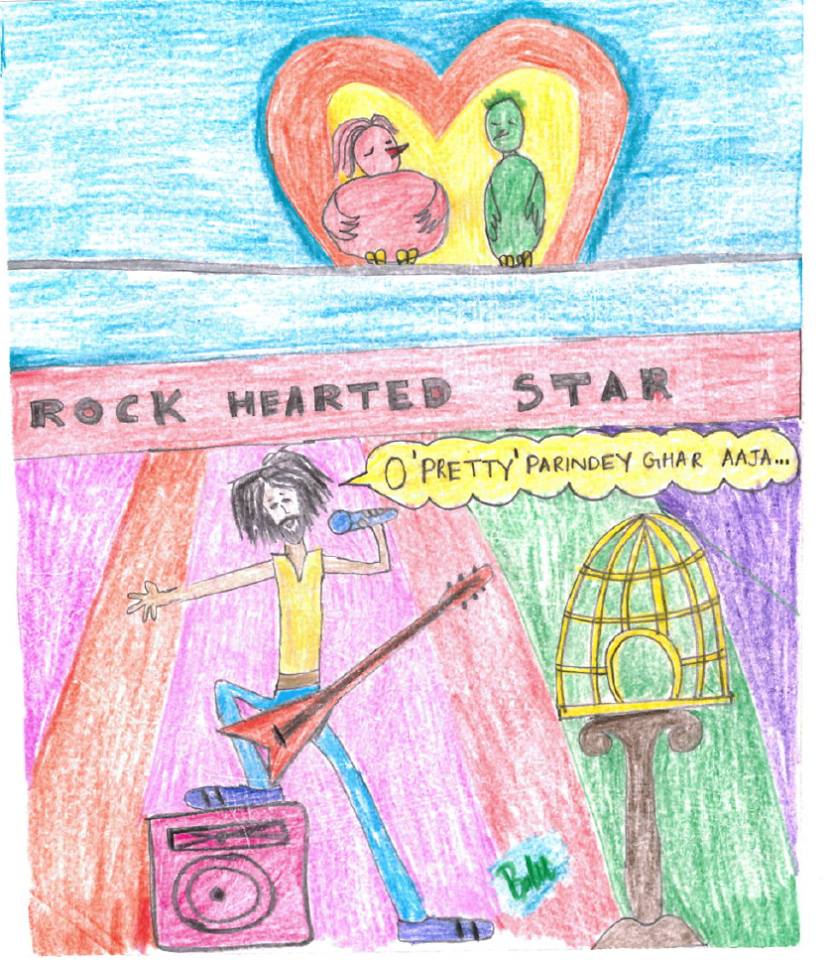 ROCK HEARTED STAR
O 'PRETTY' PARINDEY GHAR AAJA...